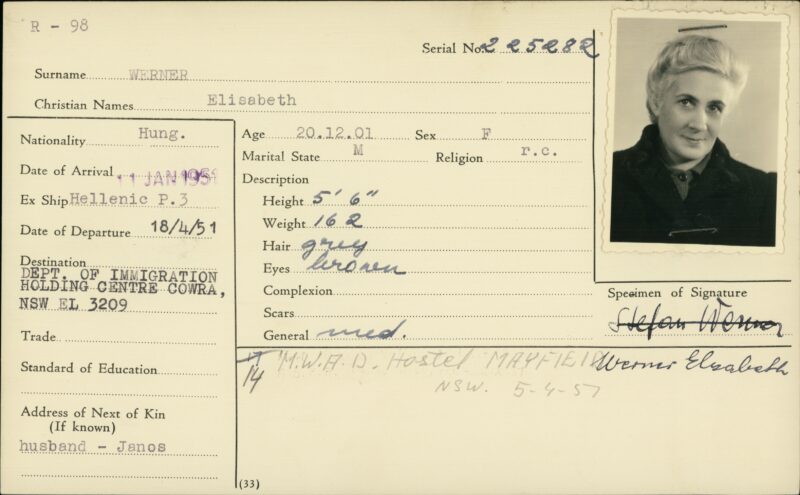 R - 98
Serial No. 225282
Surname WERNER
Christian Names Elisabeth
Nationality Hung.
Date of Arrival 11 JAN 1951
Ex Ship Hellenic P.3
Date of Departure 18/4/51
Destination
DEPT. OF IMMIGRATION
HOLDING CENTRE COWRA,
NSW EL 3209
Trade
Standard of Education
Address of Next of Kin
(If known)
husband - Janos
Age 20.12.01 Sex F
Marital State M Religion r.c.
Description
Height 5' 6"
Weight 162
Hair grey
Eyes brown
Complexion
Scars
General med.
Specimen of Signature
Stefan Werner
Werner Elsabeth
14 M.W.A.D. Hostel MAYFIELD
NSW. 5-4-51
(33)